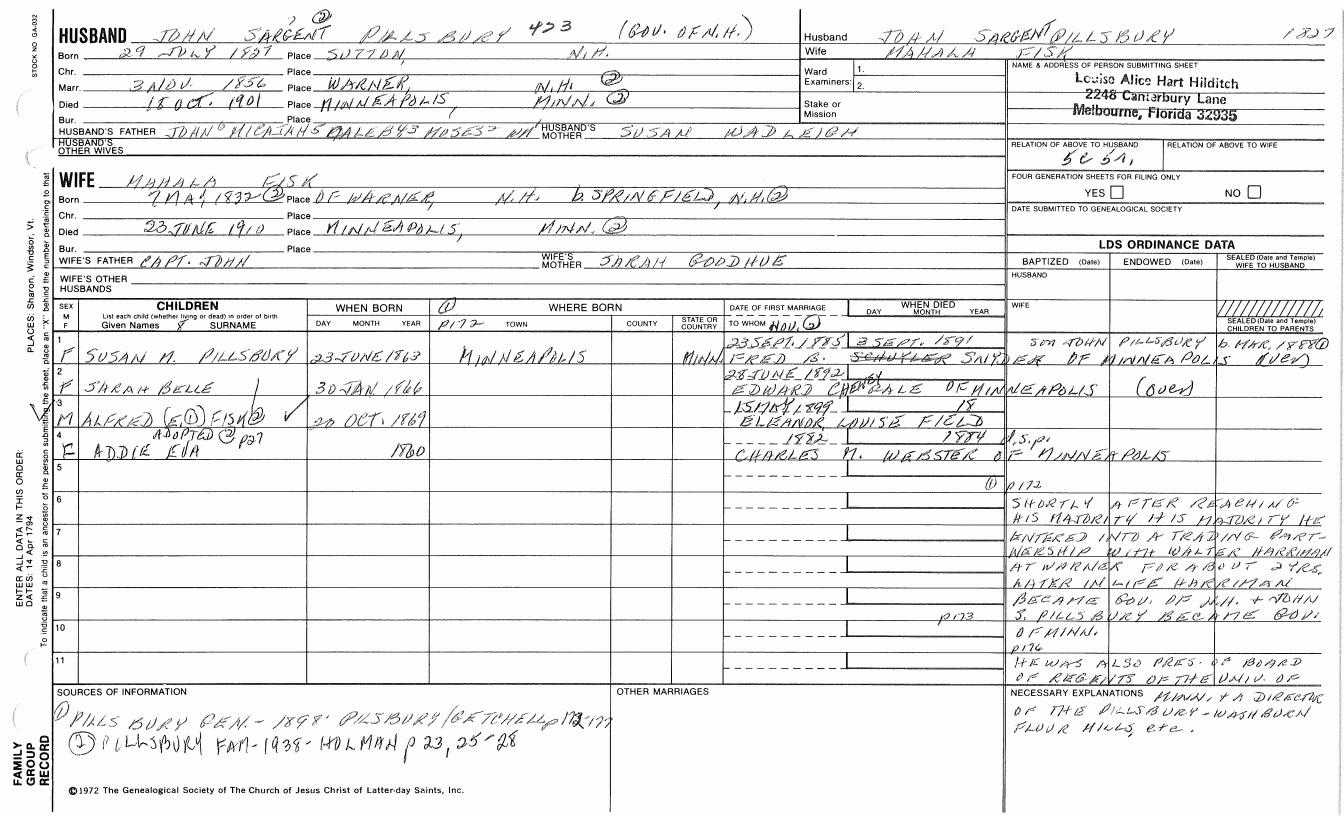 STOCK NO. GA-032
HUSBAND JOHN SARGENT PILLSBURY 423 (GOV. OF N.H.)
? ②
Born 29 JULY 1827 Place SUTTON, N.H.
Chr. Place
Marr. 3 NOV. 1856 Place WARNER, N.H. ②
Died 18 OCT. 1901 Place MINNEAPOLIS, MINN. ②
Bur. Place
HUSBAND'S FATHER JOHN⁶ MICAJAH⁵ CALEB⁴,³ MOSES² WM¹ HUSBAND'S MOTHER SUSAN WADLEIGH
HUSBAND'S OTHER WIVES
WIFE MAHALA FISK
Born 7 MAY 1832 ② Place OF WARNER, N.H. b. SPRINGFIELD, N.H. ②
Chr. Place
Died 23 JUNE 1910 Place MINNEAPOLIS, MINN. ②
Bur. Place
WIFE'S FATHER CAPT. JOHN WIFE'S MOTHER SARAH GOODHUE
WIFE'S OTHER HUSBANDS
Husband JOHN SARGENT PILLSBURY 1827
Wife MAHALA FISK
Ward Examiners: 1. 2.
Stake or Mission
NAME & ADDRESS OF PERSON SUBMITTING SHEET
Louise Alice Hart Hilditch
2248 Canterbury Lane
Melbourne, Florida 32935
RELATION OF ABOVE TO HUSBAND RELATION OF ABOVE TO WIFE
5C 5R,
FOUR GENERATION SHEETS FOR FILING ONLY
YES NO
DATE SUBMITTED TO GENEALOGICAL SOCIETY
LDS ORDINANCE DATA
BAPTIZED (Date) ENDOWED (Date) SEALED (Date and Temple) WIFE TO HUSBAND
HUSBAND
WIFE
SEALED (Date and Temple) CHILDREN TO PARENTS
SEX M F CHILDREN WHEN BORN ① WHERE BORN DATE OF FIRST MARRIAGE WHEN DIED
List each child (whether living or dead) in order of birth
Given Names SURNAME DAY MONTH YEAR p172 TOWN COUNTY STATE OR COUNTRY TO WHOM NOV. ② DAY MONTH YEAR
1 23 SEPT. 1885 3 SEPT. 1891 son JOHN PILLSBURY b. MAR. 1888 ①
F SUSAN M. PILLSBURY 23 JUNE 1863 MINNEAPOLIS MINN. FRED B. SCHUYLER SNYDER OF MINNEAPOLIS (over)
2 28 JUNE 1892
F SARAH BELLE 30 JAN. 1866 EDWARD CHENEY GALE OF MINNEAPOLIS (over)
3 15 MAY 1899 18
M ALFRED (E.①) FISK② 20 OCT. 1869 ELEANOR LOUISE FIELD
4 ADOPTED ② p27 1882 1884 d.s.p.
F ADDIE EVA 1860 CHARLES M. WEBSTER OF MINNEAPOLIS
5
6
7
8
9
10 p173
11
① p172
SHORTLY AFTER REACHING
HIS MAJORITY HIS MAJORITY HE
ENTERED INTO A TRADING PART-
NERSHIP WITH WALTER HARRIMAN
AT WARNER FOR ABOUT 2 YRS.
LATER IN LIFE HARRIMAN
BECAME GOV. OF N.H. + JOHN
S. PILLSBURY BECAME GOV.
OF MINN.
p176
HE WAS ALSO PRES. OF BOARD
OF REGENTS OF THE UNIV. OF
NECESSARY EXPLANATIONS MINN. + A DIRECTOR
OF THE PILLSBURY-WASHBURN
FLOUR MILLS, etc.
SOURCES OF INFORMATION
① PILLSBURY GEN. - 1898 - PILSBURY/GETCHELL p 172-177
② PILLSBURY FAM - 1938 - HOLMAN p 23, 25-28
OTHER MARRIAGES
©1972 The Genealogical Society of The Church of Jesus Christ of Latter-day Saints, Inc.
FAMILY GROUP RECORD
ENTER ALL DATA IN THIS ORDER:
DATES: 14 Apr 1794
PLACES: Sharon, Windsor, Vt.
To indicate that a child is an ancestor of the person submitting the sheet, place an "X" behind the number pertaining to that